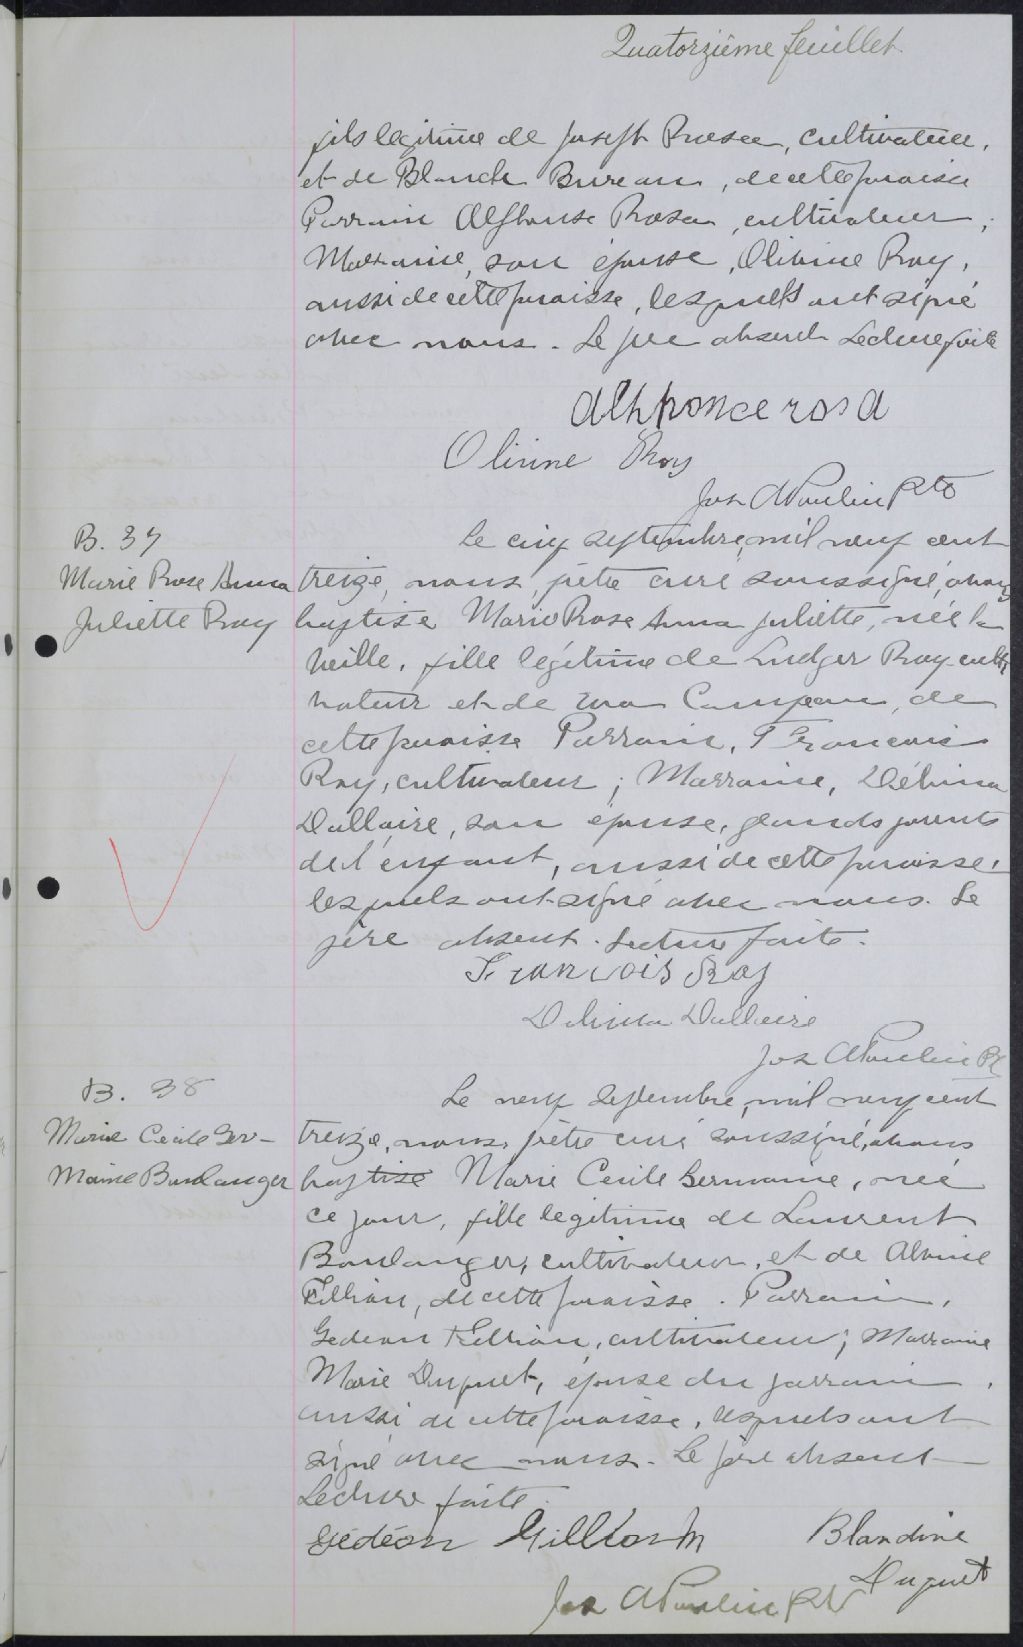 Quatorzième feuillet
fils legitime de Joseph Rosa, cultivateur,
et de Blanche Bureau, de cette paroisse
Parrain Alphonse Rosa, cultivateur;
Marraine, son épouse, Olivine Roy,
aussi de cette paroisse, lesquels ont signé
avec nous. Le père absent Lecture faite
Alphonce rosa
Olivine Roy
Jos A Poulin Ptre
B. 37
Marie Rose Anna
Juliette Roy
Le cinq septembre, mil neuf cent
treize, nous, prêtre curé soussigné, avons
baptisé Marie Rose Anna Juliette, née la
veille, fille légitime de Ludger Roy culti
vateur et de Campeau, de
cette paroisse Parrain, Francois
Roy, cultivateur; Marraine, Délima
Dallaire, son épouse, grands parents
de l'enfant, aussi de cette paroisse,
lesquels ont signé avec nous. Le
père absent. Lecture faite.
Francois Roy
Delima Dallaire
Jos A Poulin Pt
B. 38
Marie Cécile Ger-
maine Boulanger
Le neuf Septembre, mil neuf cent
treize, nous, prêtre curé soussigné, avons
baptisé Marie Cecile Germaine, née
ce jour, fille legitime de Laurent
Boulanger, cultivateur, et de Alvine
Fillion, de cette paroisse. Parrain,
Gedeon Fillion, cultivateur; Marraine
Marie Duquet, épouse du parrain,
aussi de cette paroisse, lesquels ont
signé avec nous. Le père absent
Lecture faite.
Gédéon Fillion
Blandine
Duquet
Jos A Poulin Ptr